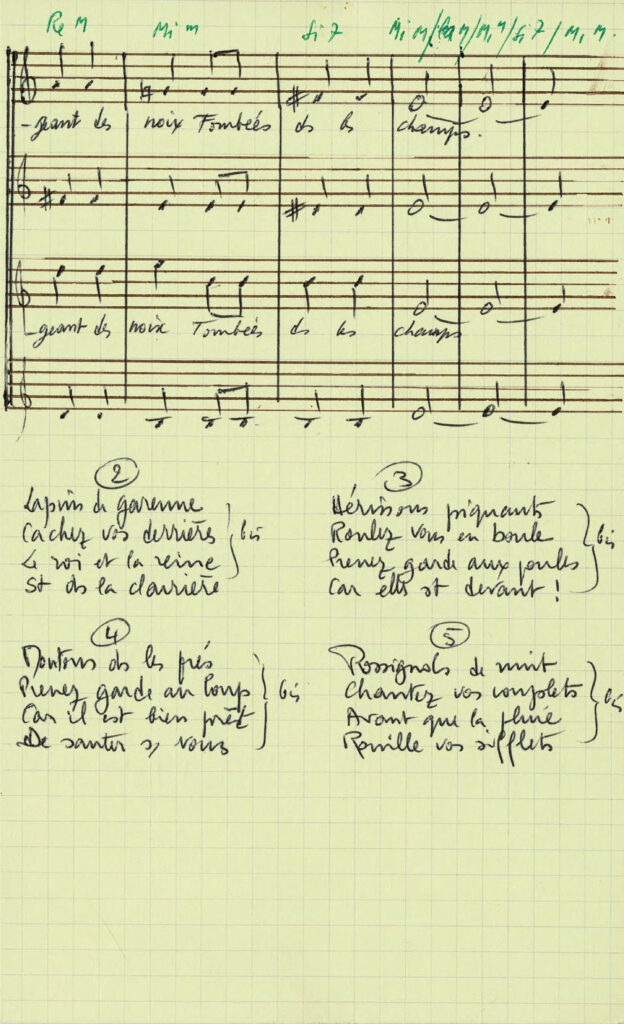 Re M Mi m Si 7 Mi m / La m / Mi m / Si 7 / Mi m.
-geant des noix Tombées ds les champs.
-geant des noix Tombées ds les champs
②
Lapins de garenne
Cachez vos derrières
Le roi et la reine
St ds la clairrière
bis
③
Hérissons piquants
Roulez vous en boule
Prenez garde aux poules
Car elles st devant !
bis
④
Moutons ds les prés
Prenez garde au loup
Car il est bien prêt
De sauter s/ vous
bis
⑤
Rossignols de nuit
Chantez vos couplets
Avant que la pluie
Rouille vos sifflets
bis